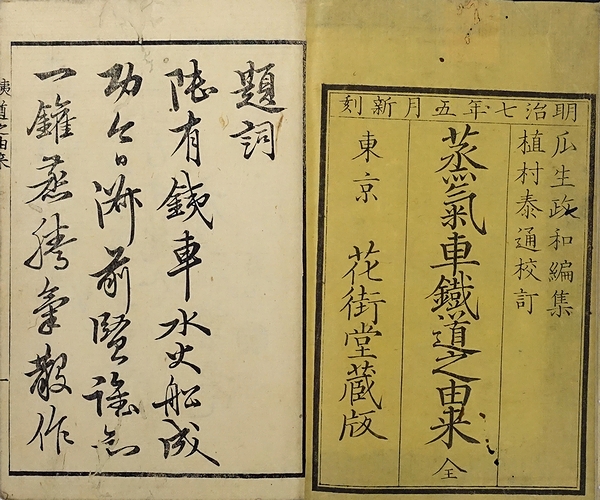 明治七年五月新刻
瓜生政和編集
植村泰通校訂
蒸氣車鐵道之由来 全
東京 花街堂蔵版
題詞
陸有鉄車水火船成
功今日前賢誰知
一鑵蒸騰氣散作
道之由来